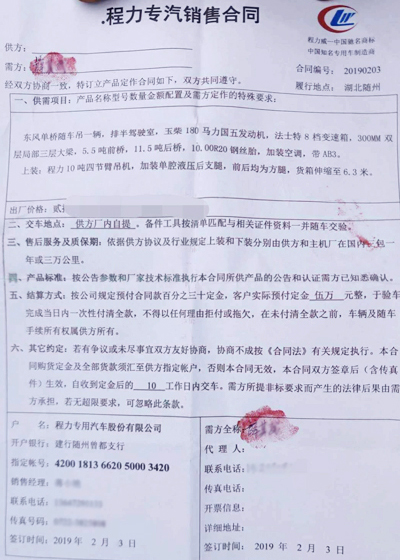 程力专汽销售合同
程力威—中国驰名商标
中国知名专用车制造商
供方：
需方：
合同编号： 20190203
经双方协商一致，特订立产品定作合同如下，双方共同遵守。
履行地点： 湖北随州
一、供需项目：产品名称型号数量金额配置及需方定作的特殊要求：
东风单桥随车吊一辆，排半驾驶室，玉柴 180 马力国五发动机，法士特 8 档变速箱，300MM 双
层局部三层大梁，5.5 吨前桥，11.5 吨后桥，10.00R20 钢丝胎，加装空调，带 AB3。
上装：程力 10 吨四节臂吊机，加装单腔液压后支腿，前后均为方腿，货箱伸缩至 6.3 米。
出厂价格：贰
二、交车地点：供方厂内自提，备件工具按清单匹配与相关证件资料一并随车交验。
三、售后服务及质保期：依据供方协议及行业规定上装和下装分别由供方和主机厂在国内 包一
年或三万公里。
四、产品标准：按公告参数和厂家技术标准执行本合同所供产品的公告和认证需方已知悉确认。
五、结算方式：按公司规定预付合同款百分之三十定金，客户实际预付定金 伍万 元整，于验车
完成当日内一次性付清全款，不得以任何理由拒付或拖欠，在未付清全款之前，车辆及随车
手续所有权属供方所有。
六、其它约定：若有争议或未尽事宜双方友好协商，协商不成按《合同法》有关规定执行。本合
同购货定金及全部货款须汇至供方指定帐户，否则本合同无效，本合同双方签章后（含传真
件）生效，自收到定金后的 10 工作日内交车。需方所提非标要求而产生的法律后果由需
方承担，若无超限要求，可忽略此条款。
户 名：程力专用汽车股份有限公司
开户银行：建行随州曾都支行
指定帐号：4200 1813 6620 5000 3420
销售经理：
联系电话：
传真号码：
签订时间：2019 年 2 月 3 日
需方全称
代 理 人：
联系电话：
传真电话：
开票信息：
详细地址：
签订时间：2019 年 2 月 3 日